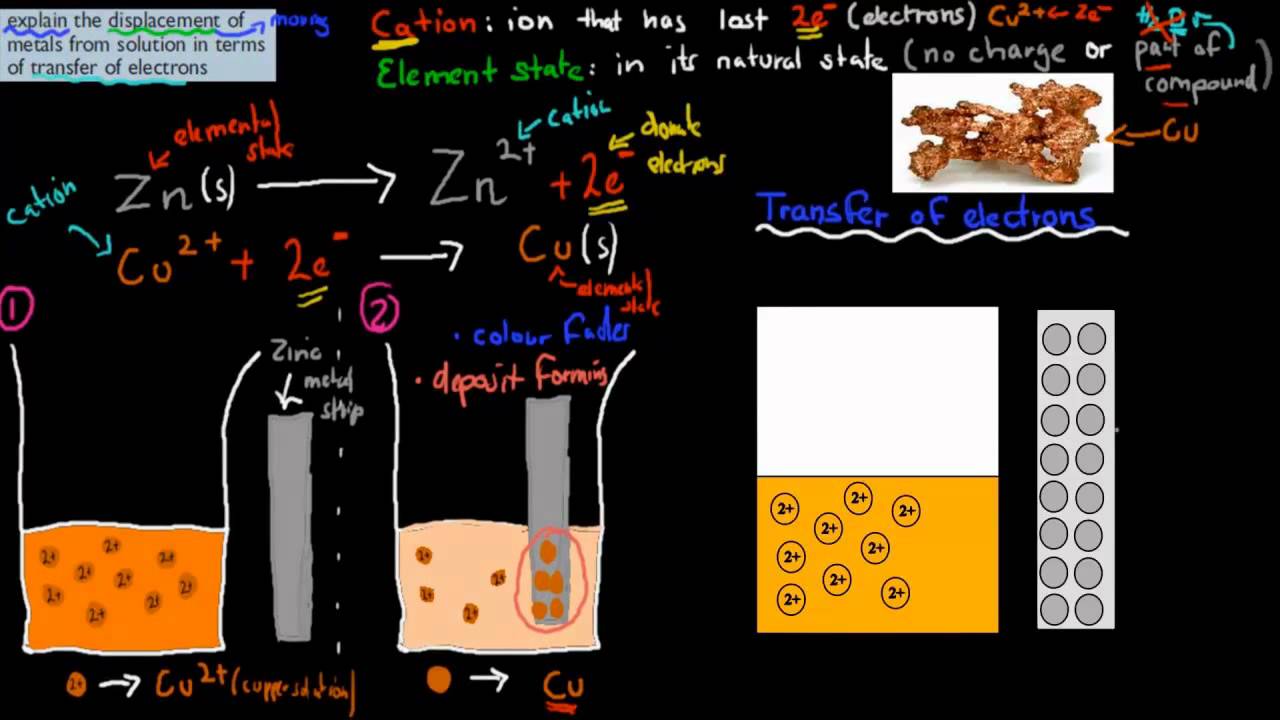 explain the displacement of
metals from solution in terms
of transfer of electrons
moving
Cation: ion that has lost 2e⁻ (electrons) Cu²⁺ ← 2e⁻
Element state: in its natural state (no charge or part of
compound)
Cu
elemental
state
Zn(s) → Zn²⁺ + 2e⁻
cation
donate
electrons
cation
Cu²⁺ + 2e⁻ → Cu(s)
elemental
state
Transfer of electrons
1
2
• colour fades
• deposit forming
Zinc
metal
strip
2+ 2+ 2+ 2+ 2+ 2+ 2+ 2+ 2+
2+ 2+ 2+ 2+
2+ 2+ 2+ 2+ 2+ 2+ 2+ 2+ 2+
2+ → Cu²⁺ (copper solution)
→ Cu